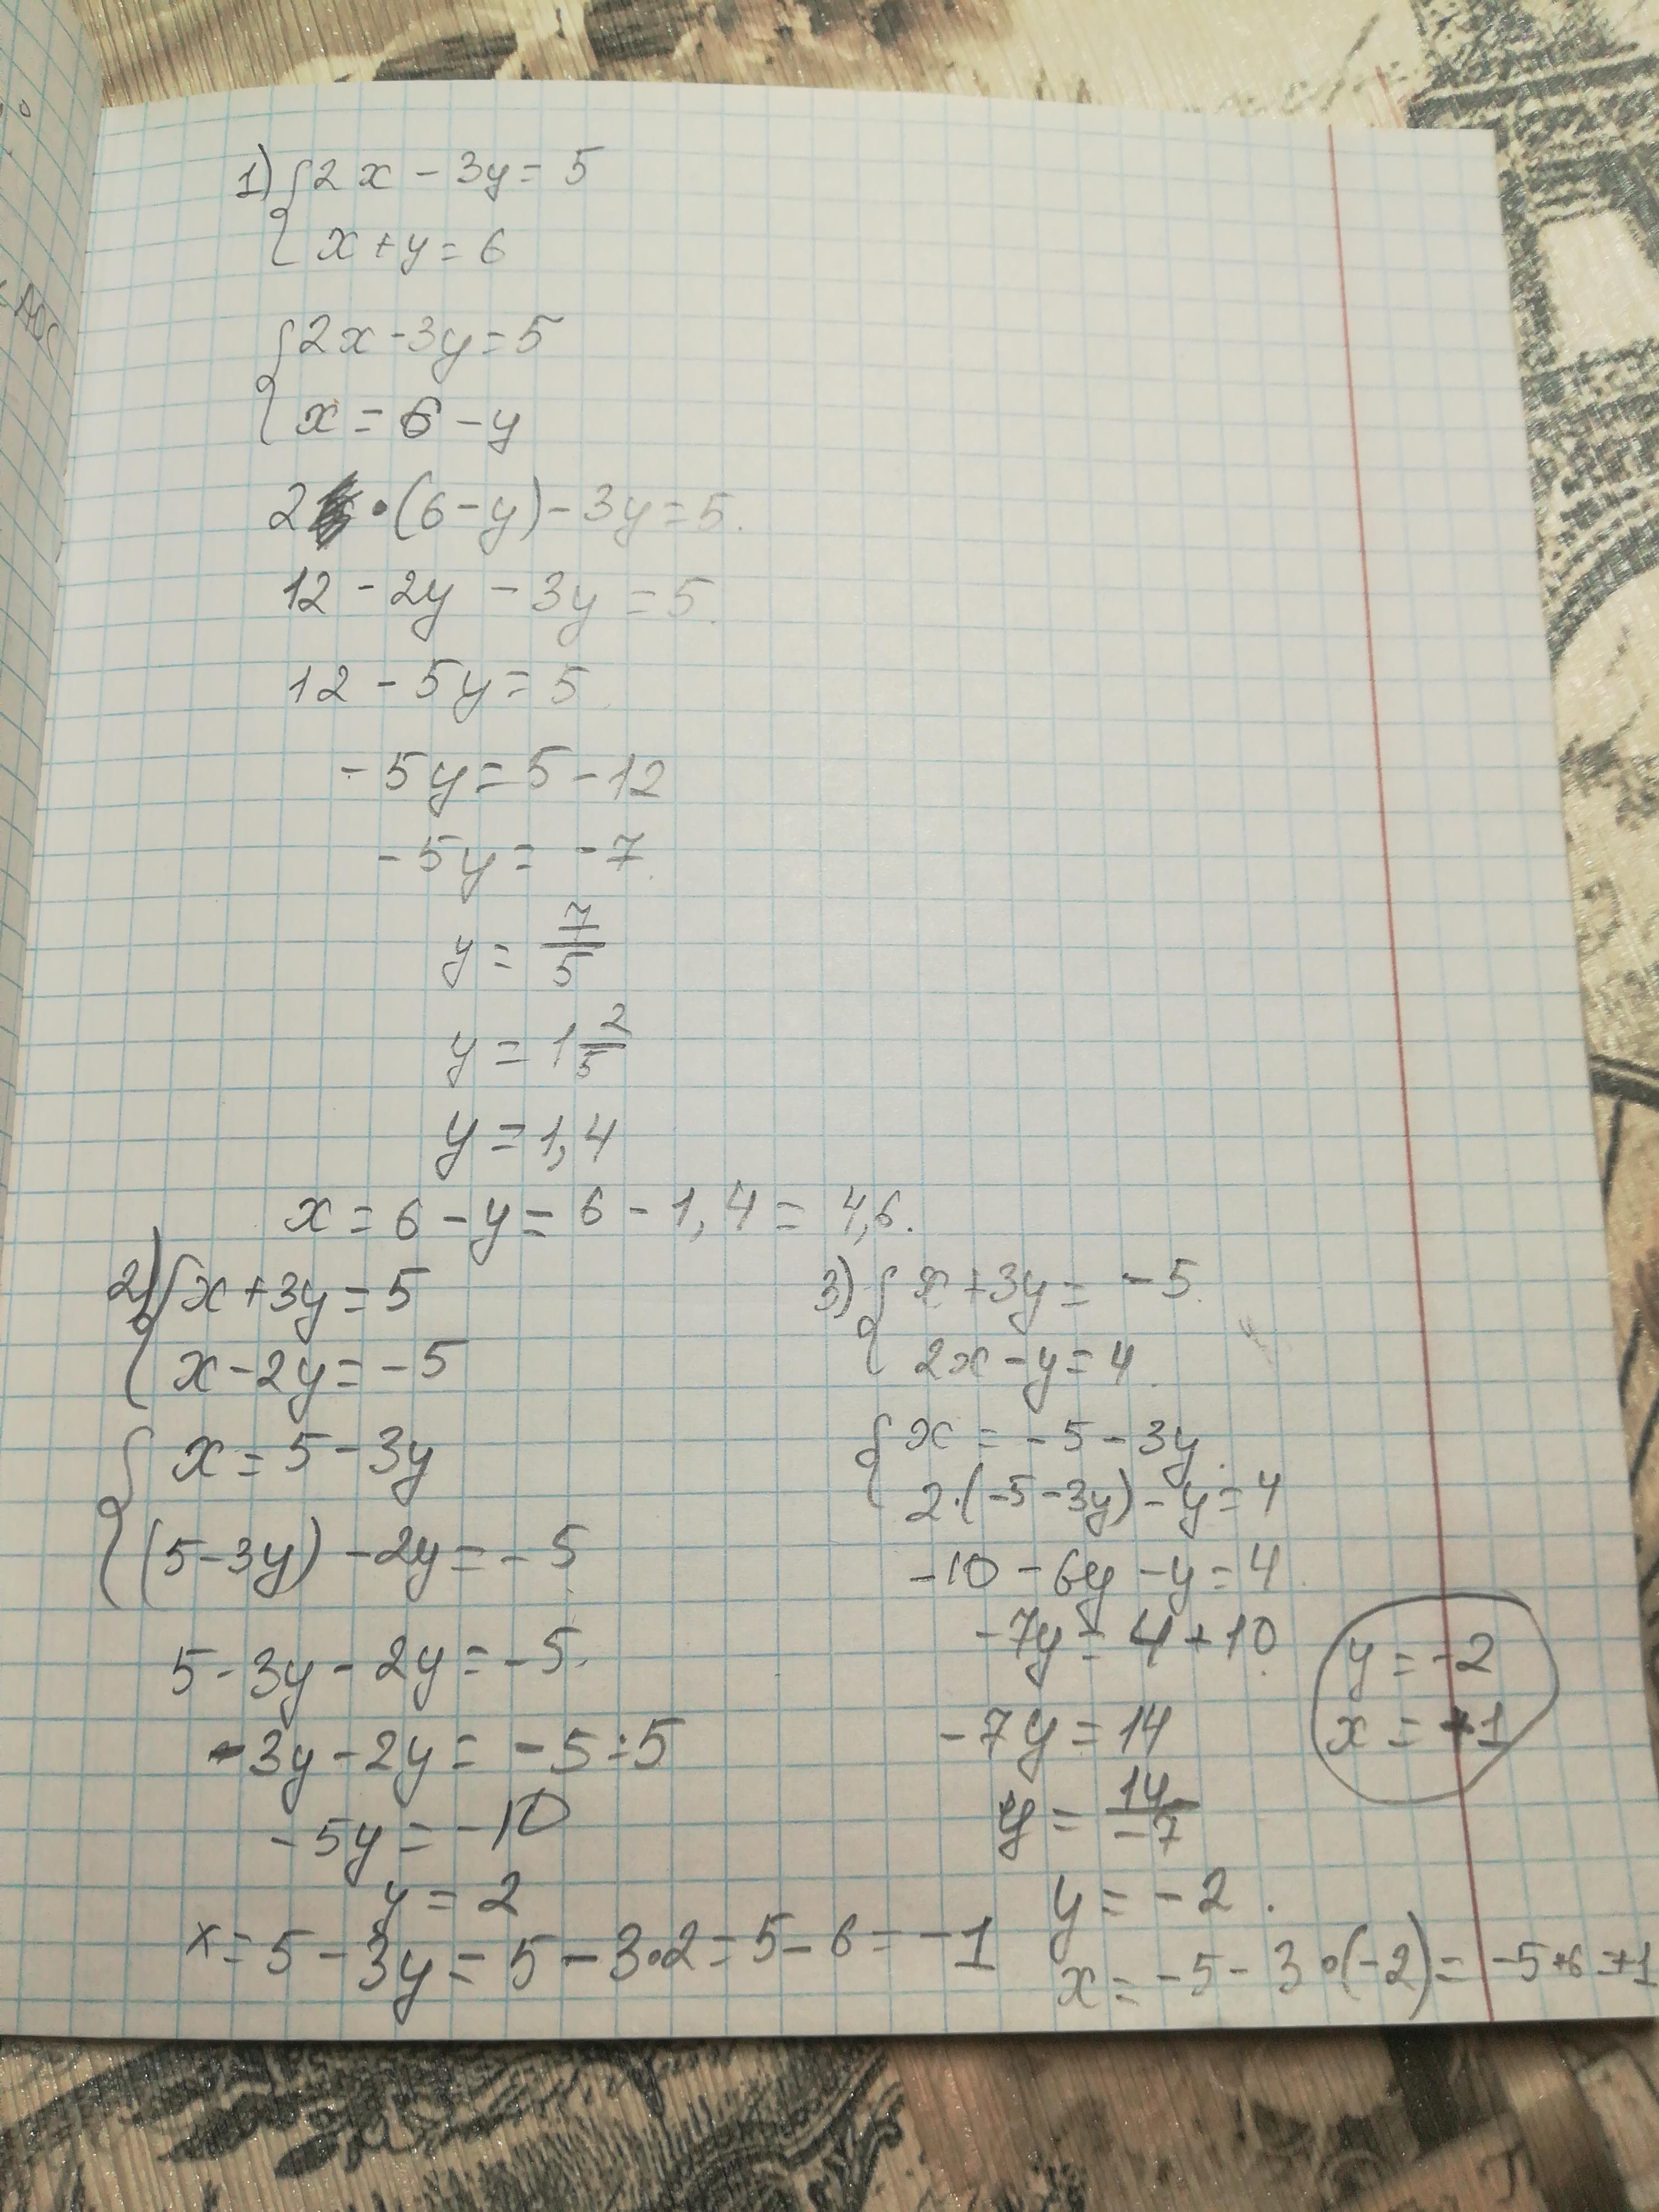 1) { 2x - 3y = 5
x + y = 6
{ 2x - 3y = 5
x = 6 - y
2 · (6 - y) - 3y = 5.
12 - 2y - 3y = 5
12 - 5y = 5
-5y = 5 - 12
-5y = -7
y = 7/5
y = 1 2/5
y = 1,4
x = 6 - y = 6 - 1,4 = 4,6.
2) { x + 3y = 5
x - 2y = -5
{ x = 5 - 3y
(5 - 3y) - 2y = -5
5 - 3y - 2y = -5.
-3y - 2y = -5 - 5
-5y = -10
y = 2
x = 5 - 3y = 5 - 3·2 = 5 - 6 = -1
3) { x + 3y = -5
2x - y = 4
{ x = -5 - 3y
2·(-5 - 3y) - y = 4
-10 - 6y - y = 4
-7y = 4 + 10
-7y = 14
y = 14/-7
y = -2.
x = -5 - 3·(-2) = -5 + 6 = +1
y = -2
x = +1